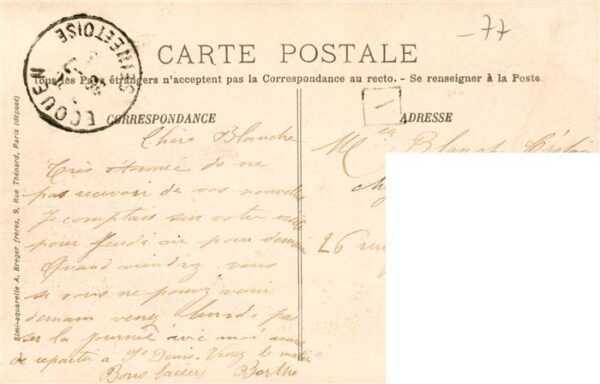 -77
CARTE POSTALE
Tous les Pays étrangers n'acceptent pas la Correspondance au recto. - Se renseigner à la Poste.
ECOUEN
SEINE-ET-OISE
CORRESPONDANCE
ADRESSE
1
Chère Blanche
Très étonnée de ne
pas recevoir de vos nouvelles
Je comptais sur votre visite
pour Jeudi pour demain
Quand viendrez vous
si vous ne pouvez venir
demain venez lundi
la journée avec moi avant
de repartir à St Denis. Venez le matin
Bons baisers Berthe
Melle Blanche
26 rue
Simi-aquarelle A. Breger frères, 9, Rue Thénard, Paris (déposé)